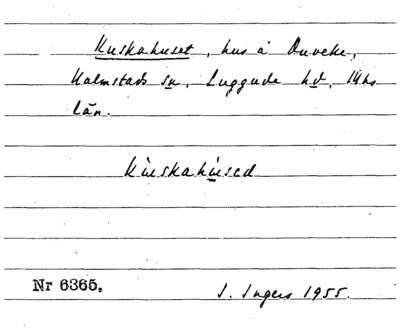 Kuskahuset, hus å Duveke,
Halmstads sn, Luggude hd, Mhs
län.
Kuskahused
Nr 6365.
I. Ingers 1955.